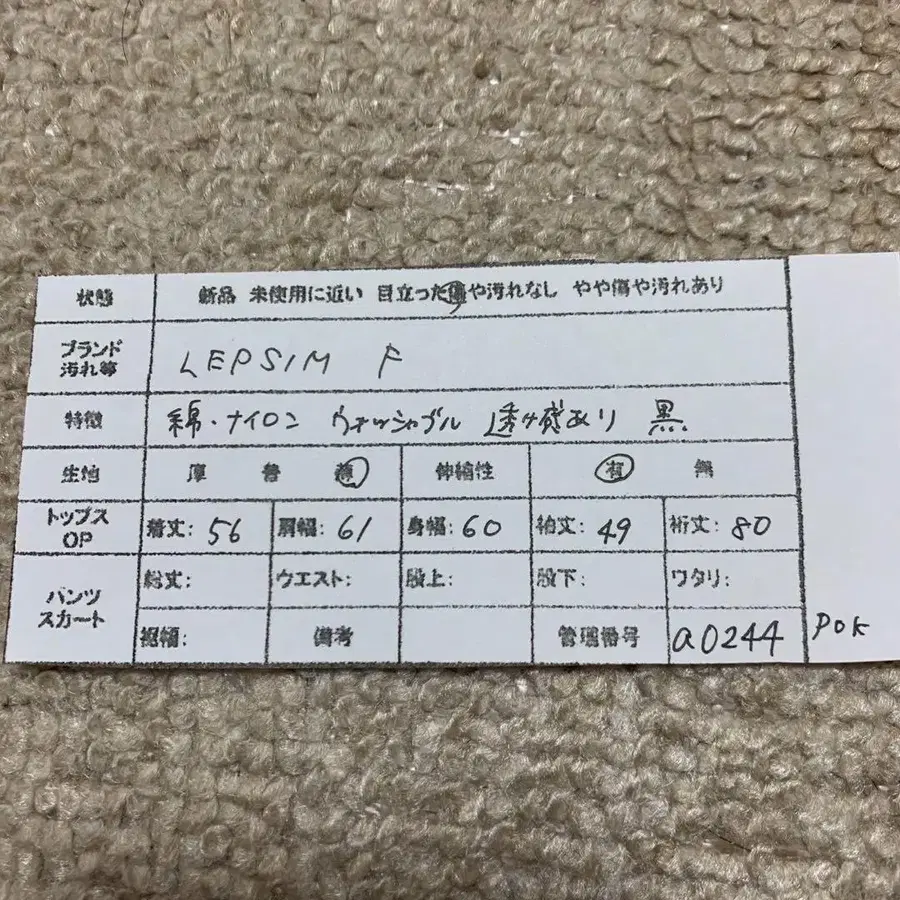 状態 新品 未使用に近い 目立った傷や汚れなし やや傷や汚れあり
ブランド
汚れ等 LEPSIM F
特徴 綿・ナイロン ウォッシャブル 透け感あり 黒
生地 厚 普 薄 伸縮性 有 無
トップス
OP 着丈: 56 肩幅: 61 身幅: 60 袖丈: 49 裄丈: 80
パンツ
スカート 総丈: ウエスト: 股上: 股下: ワタリ:
裾幅: 備考 管理番号 a0244 POK